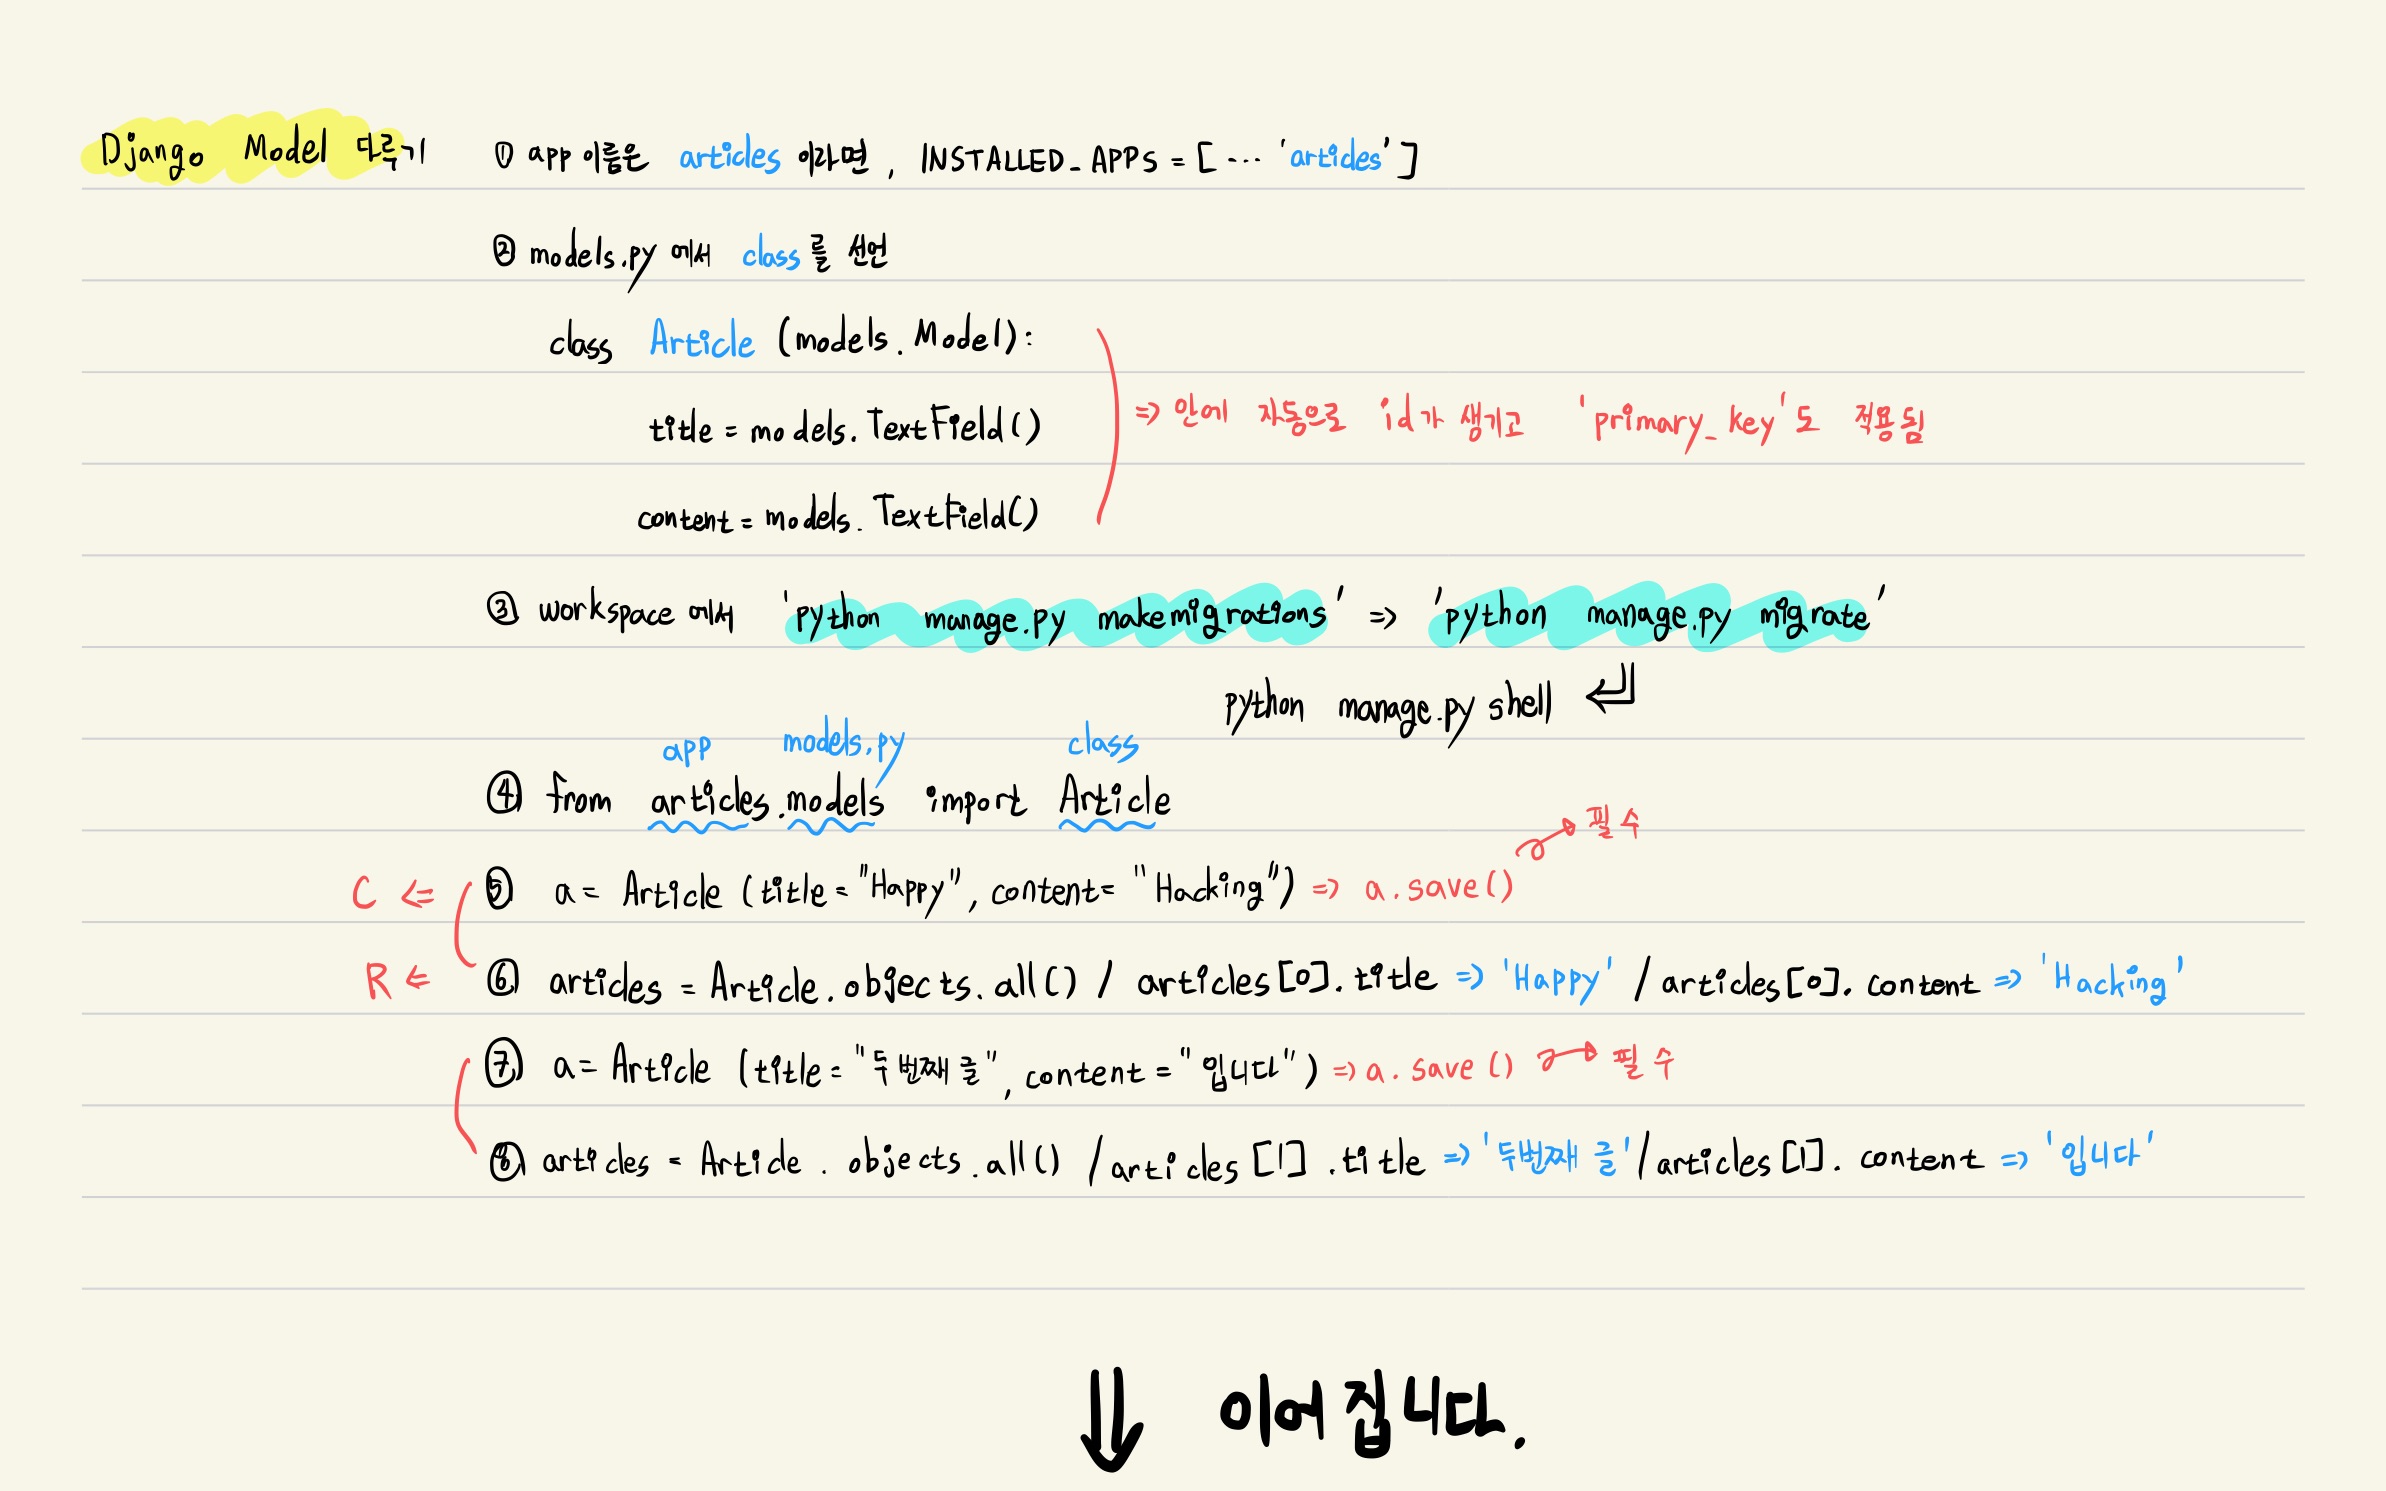 Django Model 다루기 ① app 이름은 articles 이라면, INSTALLED_APPS = [ ··· 'articles' ]
② models.py 에서 class를 선언
class Article (models.Model):
title = models.TextField()
=> 안에 자동으로 id가 생기고 'primary_key'도 적용됨
content = models.TextField()
③ workspace 에서 'python manage.py makemigrations' => 'python manage.py migrate'
python manage.py shell
app models.py class
④ from articles.models import Article
필수
C <= ⑤ a = Article (title = "Happy", content = "Hacking") => a.save()
R <= ⑥ articles = Article.objects.all() / articles[0].title => 'Happy' / articles[0].content => 'Hacking'
⑦ a = Article (title = "두번째 글", content = "입니다") => a.save() 필수
⑧ articles = Article.objects.all() / articles[1].title => '두번째 글' / articles[1].content => '입니다'
⇓ 이어집니다.